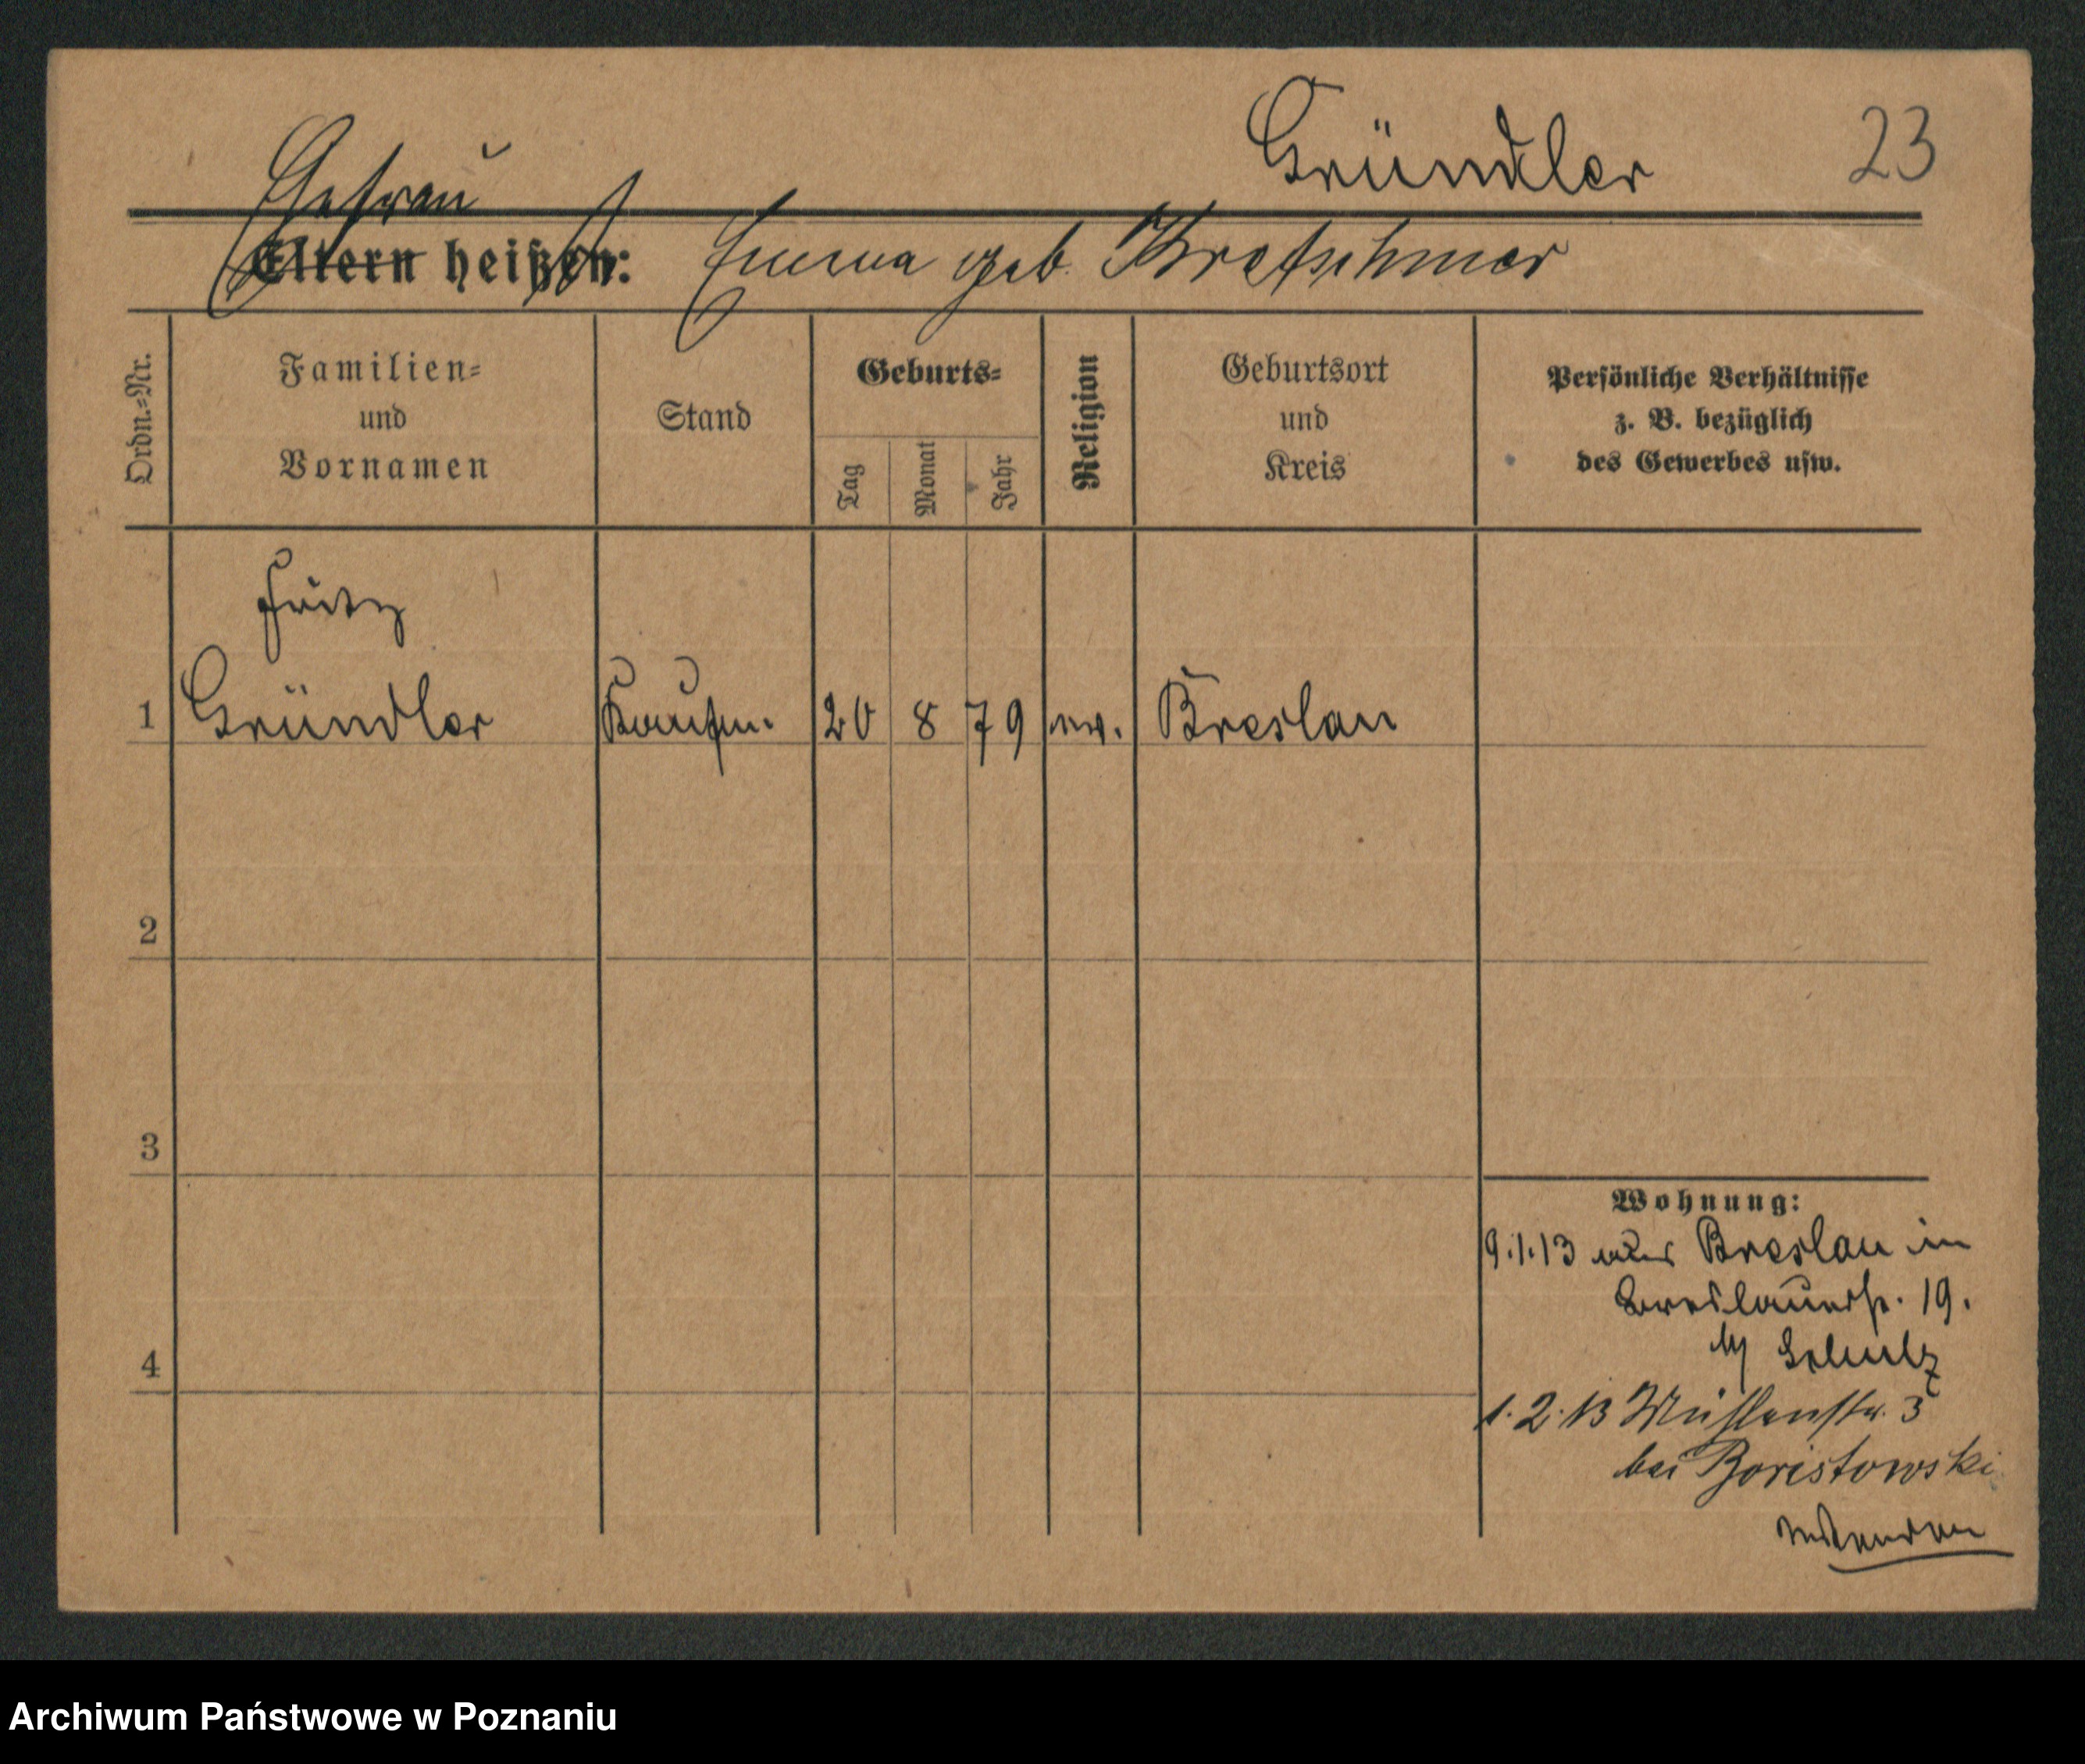 Gründler 23
Ehefrau
Eltern heißen: Emma geb. Kretschmer
Ordn.-Nr.
Familien-
und
Vornamen
Stand
Geburts-
Tag
Monat
Jahr
Religion
Geburtsort
und
Kreis
Persönliche Verhältnisse
z. B. bezüglich
des Gewerbes usw.
Fritz
1 Gründler Kaufm. 20 8 79 ev. Breslau
2
3
4
Wohnung:
9.1.13 aus Breslau in
Breslauerstr. 19.
b/ Schulz
1.2.13 Mühlenstr. 3
bei Boristowski
Archiwum Państwowe w Poznaniu